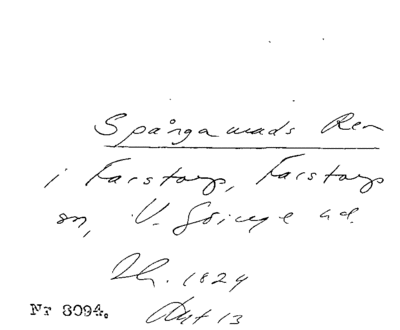 Spångamads Ren
i Farstorp, Farstorps
sn, V. Göinge hd.
Th. 1824
Akt 13
Nr 8094.